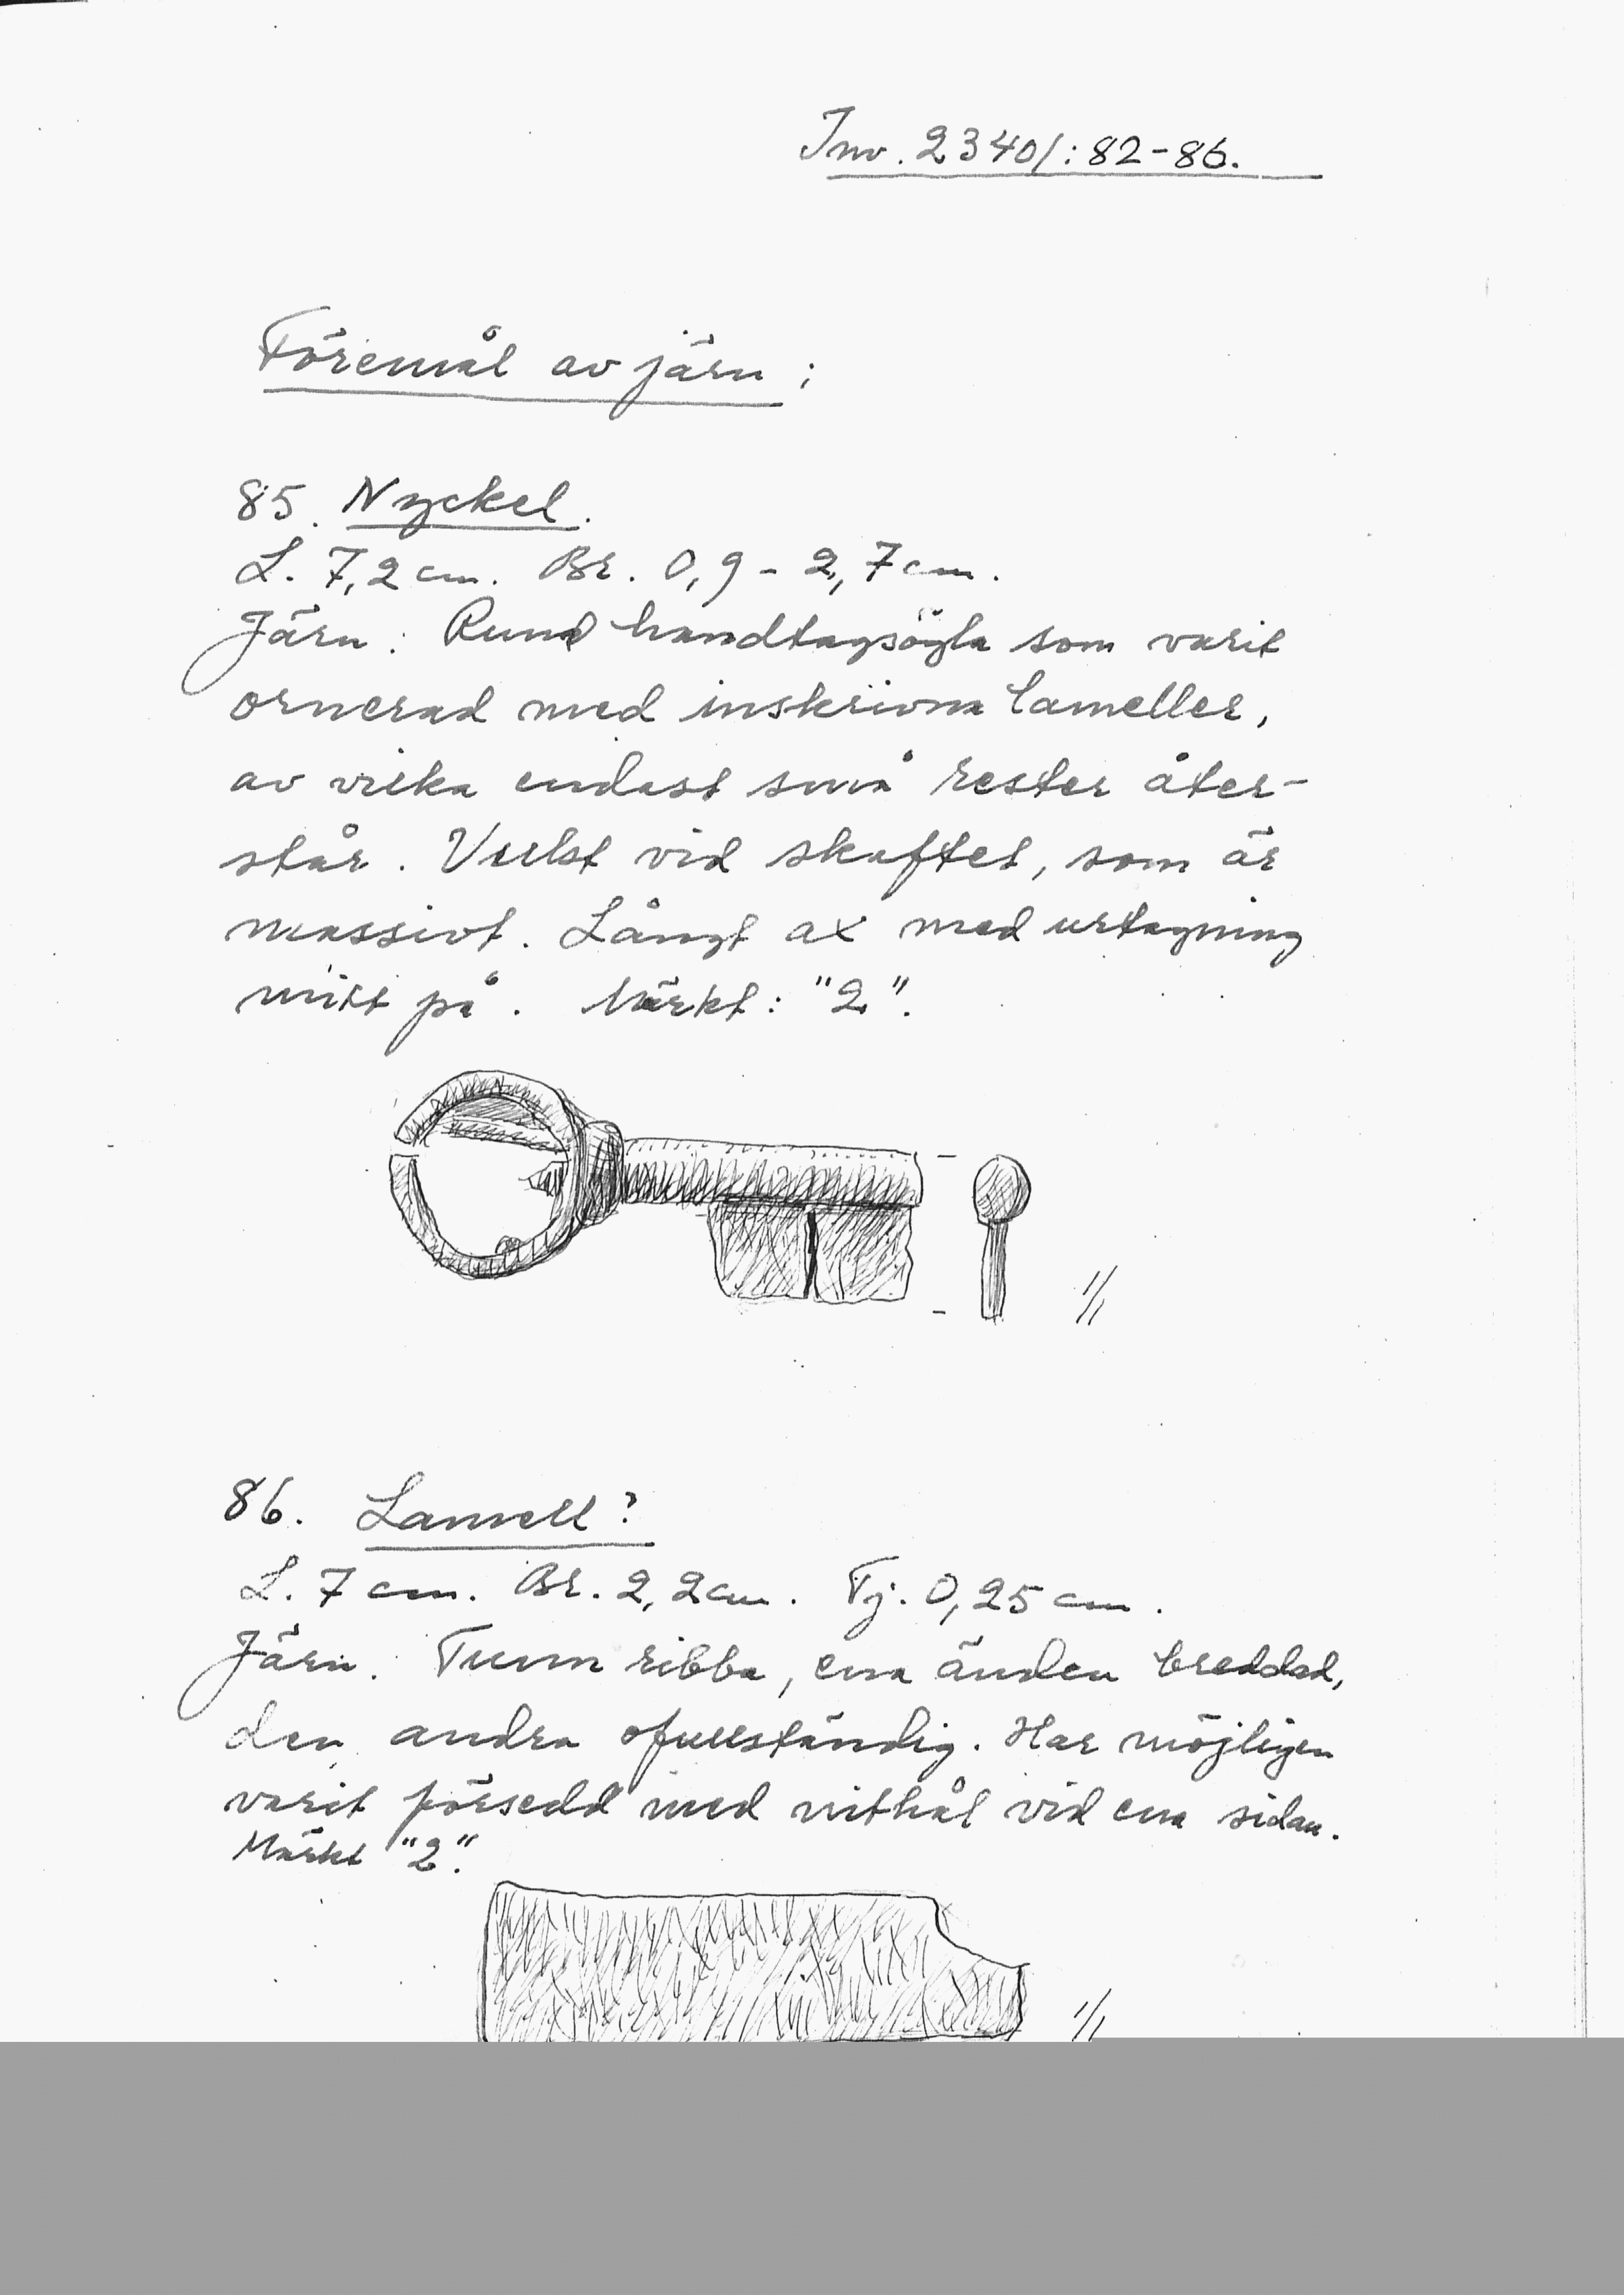 Inv. 23401:82-86.
Föremål av järn:
85. Nyckel.
L. 7,2 cm. Br. 0,9 - 2,7 cm.
Järn. Rund handtagsögla som varit
ornerad med inskrivna lameller,
av vilka endast små rester åter-
står. Vulst vid skaftet, som är
massivt. Långt ax med urtagning
mitt på. Märkt: "2".
1/1
86. Lamell?
L. 7 cm. Br. 2,2 cm. Tj. 0,25 cm.
Järn. Tunn ribba, ena änden breddad,
den andra ofullständig. Har möjligen
varit försedd med nithål vid ena sidan.
Märkt "2".
1/1